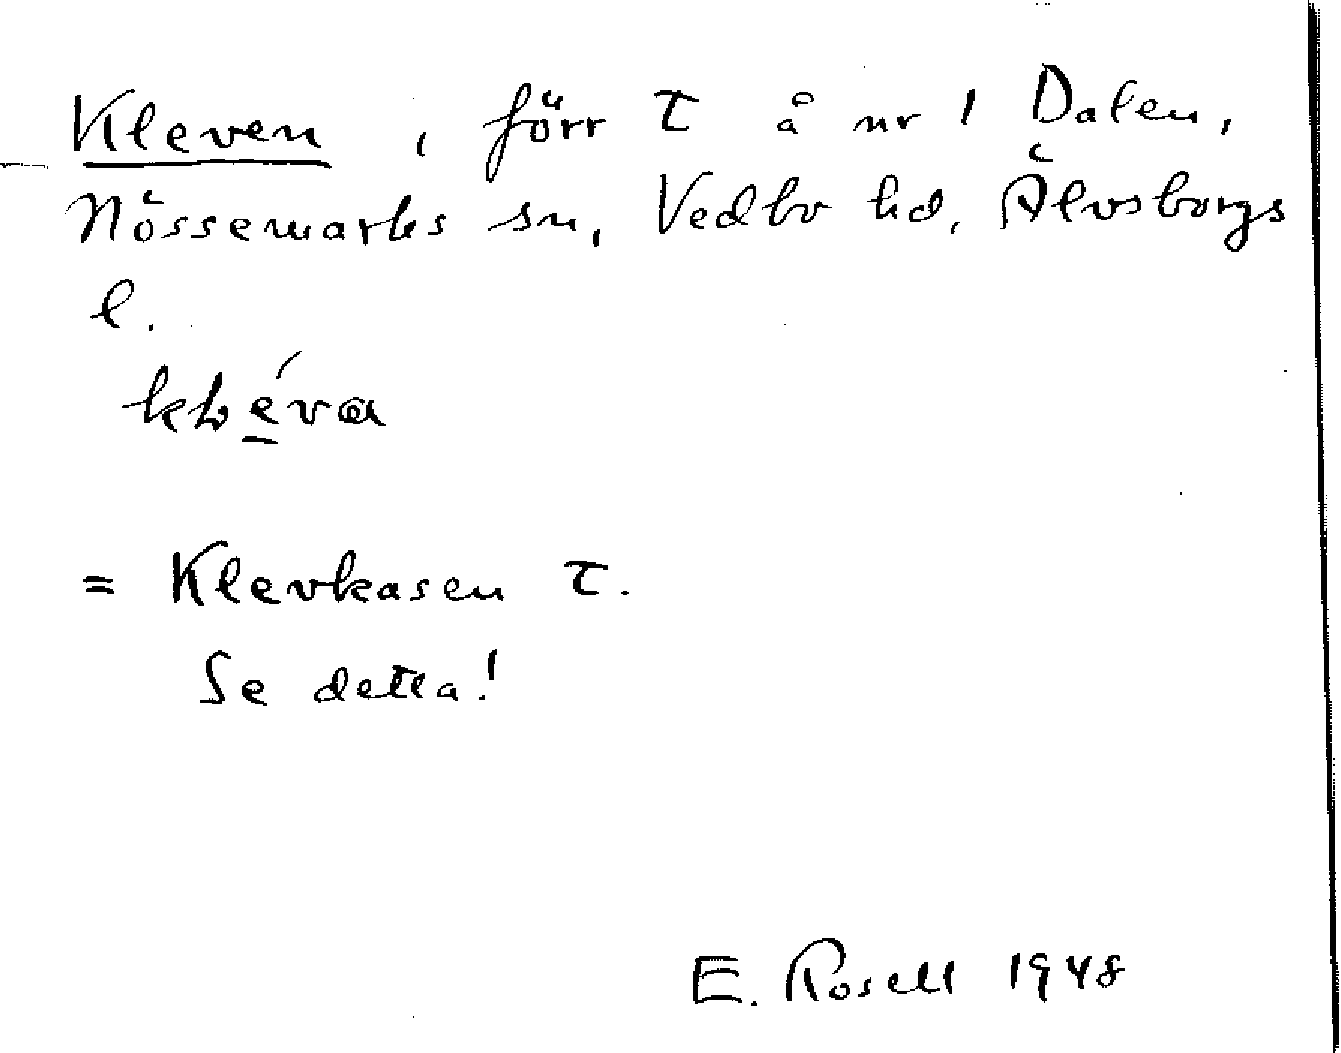 Kleven, förr τ å nr 1 Dalen,
Nössemarks sn, Vedbo hd, Älvsborgs
l.
= Klevkasen τ.
Se detta!
E. Rosell 1948